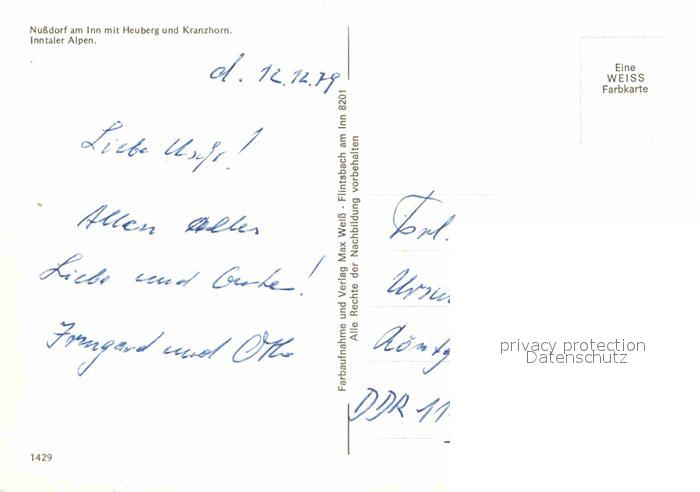 Nußdorf am Inn mit Heuberg und Kranzhorn.
Inntaler Alpen.
d. 12.12.79
Liebe Uschi!
Allen alles
Liebe und Gute!
Irmgard und Otto
1429
Farbaufnahme und Verlag Max Weiß - Flintsbach am Inn 8201
Alle Rechte der Nachbildung vorbehalten
Eine
WEISS
Farbkarte
Frl.
DDR 11
privacy protection
Datenschutz